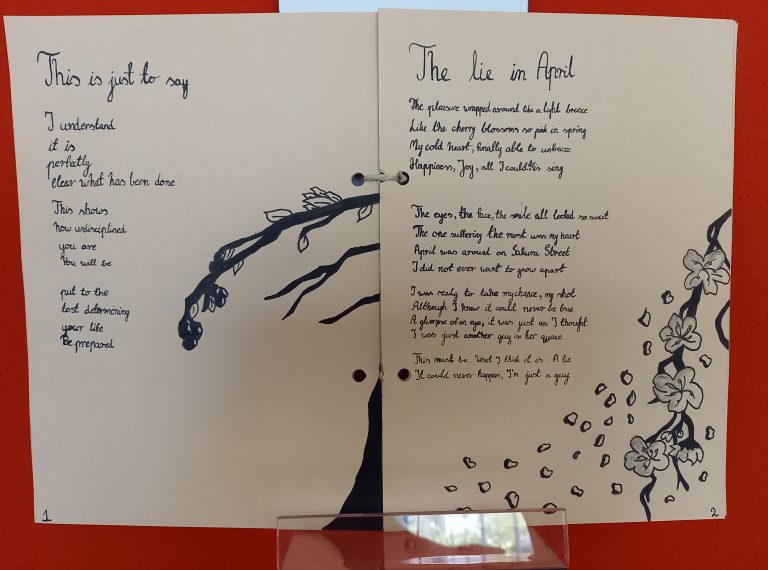 This is just to say
I understand
it is
perfectly
clear what has been done
This shows
how undisciplined
you are
You will be
put to the
test determining
your life
Be prepared
1
The lie in April
The pleasure wrapped around like a light breeze
Like the cherry blossoms so pink in spring
My cold heart, finally able to unfreeze
Happiness, Joy, all I could sing
The eyes, the face, the smile all looked so sweet
The one suffering the most was my heart
April was around on Sakura Street
I did not ever want to grow apart
I was ready to take my chance, my shot
Although I knew it could never be true
A glimpse of an eye, it was just as I thought
I was just another guy in her queue
This must be. What I think it is. A lie
It could never happen, I'm just a guy
2